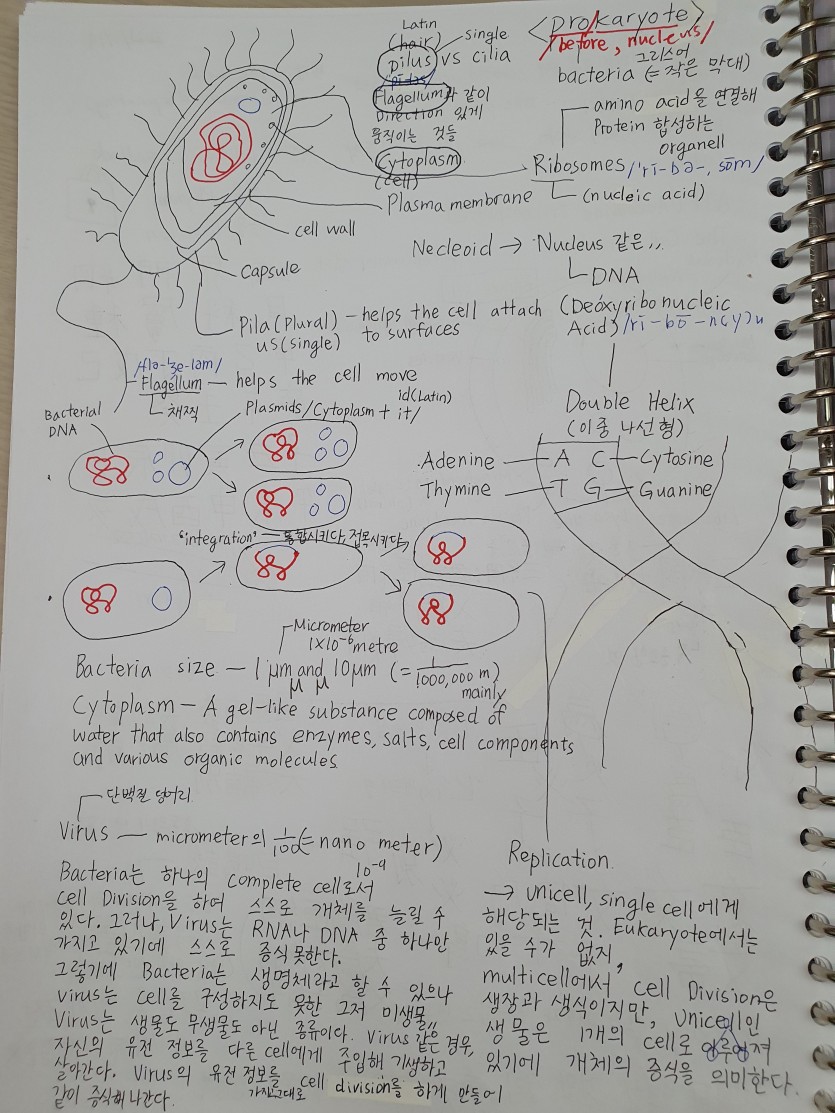 <prokaryote>
/before, nucleus/
그리스어
bacteria (= 작은 막대)
Latin
(hair)
single
pilus vs cilia
Flagellum과 같이
Direction 있게
움직이는 것들
Cytoplasm
(cell)
amino acid을 연결해
Protein 합성하는
organell
Ribosomes /'rī-bə-, sōm/
(nucleic acid)
Plasma membrane
cell wall
Capsule
Necleoid → Nucleus 같은,,
DNA
(Deoxyribonucleic
Acid) /rī-bō-n(y)u
Pila(Plural) — helps the cell attach
us(single) to surfaces
/fla-ʒe-lam/
Flagellum — helps the cell move
채찍
Bacterial
DNA
Plasmids/Cytoplasm + id(Latin)
it/
Double Helix
(이중 나선형)
Adenine — A C — Cytosine
Thymine — T G — Guanine
'integration' — 통합시키다, 접목시키다
Micrometer
1×10⁻⁶ metre
Bacteria size — 1 μm and 10 μm (= 1/1000,000 m)
μ μ
mainly
Cytoplasm — A gel-like substance composed of
water that also contains enzymes, salts, cell components
and various organic molecules
단백질 덩어리
Virus — micrometer의 1/100(= nano meter)
10⁻⁹
Bacteria는 하나의 complete cell로서
Cell Division을 하여 스스로 개체를 늘릴 수
있다. 그러나, Virus는 RNA나 DNA 중 하나만
가지고 있기에 스스로 증식 못한다.
그렇기에 Bacteria는 생명체라고 할 수 있으나
virus는 cell를 구성하지도 못한 그저 미생물,,
Virus는 생물도 무생물도 아닌 종류이다. Virus 같은 경우,
자신의 유전 정보를 다른 cell에게 주입해 기생하고
살아간다. Virus의 유전 정보를 가진 그대로 cell division를 하게 만들어
같이 증식해 나간다.
Replication.
→ unicell, single cell에게
해당되는 것. Eukaryote에서는
있을 수가 없지,
multicell에서 cell Division은
생장과 생식이지만, Unicell인
생물은 1개의 cell로 이루어져
있기에 개체의 증식을 의미한다.